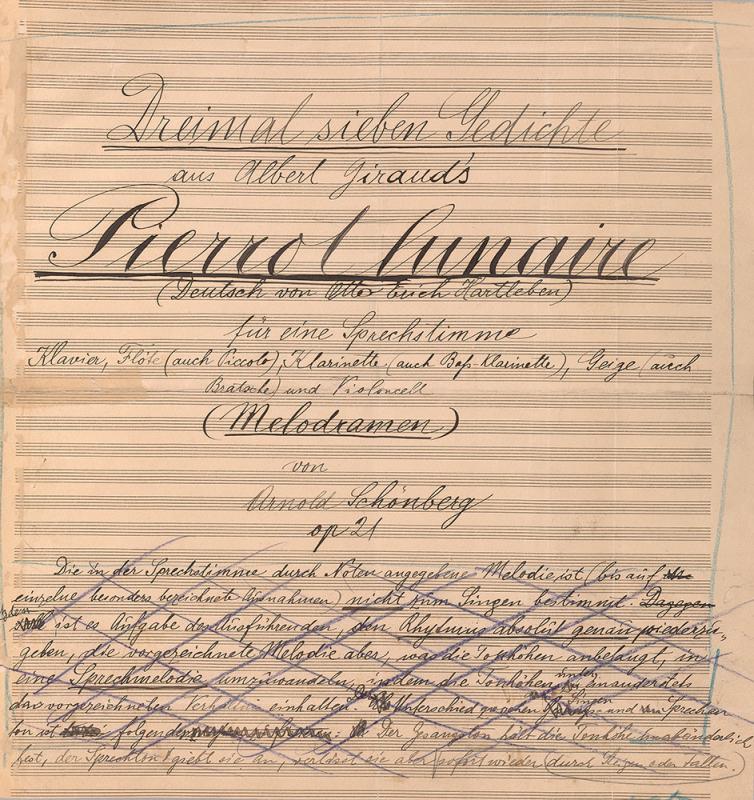 Dreimal sieben Gedichte
aus Albert Giraud's
Pierrot lunaire
(Deutsch von Otto Erich Hartleben)
für eine Sprechstimme
Klavier, Flöte (auch Piccolo), Klarinette (auch Baß-Klarinette), Geige (auch
Bratsche) und Violoncell
(Melodramen)
von
Arnold Schönberg
op 21
Die in der Sprechstimme durch Noten angegebene Melodie ist (bis auf
einzelne besonders bezeichnete Ausnahmen) nicht zum Singen bestimmt. Dagegen
ist es Aufgabe des Ausführenden, den Rhythmus absolut genau wiederzu-
geben, die vorgezeichnete Melodie aber, was die Tonhöhen anbelangt, in
eine Sprechmelodie umzuwandeln, indem die Tonhöhen unter einander stets
das vorgezeichnete Verhältnis einhalten. Unterschied zwischen Singen und Sprechen
ton ist folgender: Der Gesangston hält die Tonhöhe unabänderlich
fest, der Sprechton giebt sie an, verlässt sie aber sofort wieder durch Steigen oder Fallen.